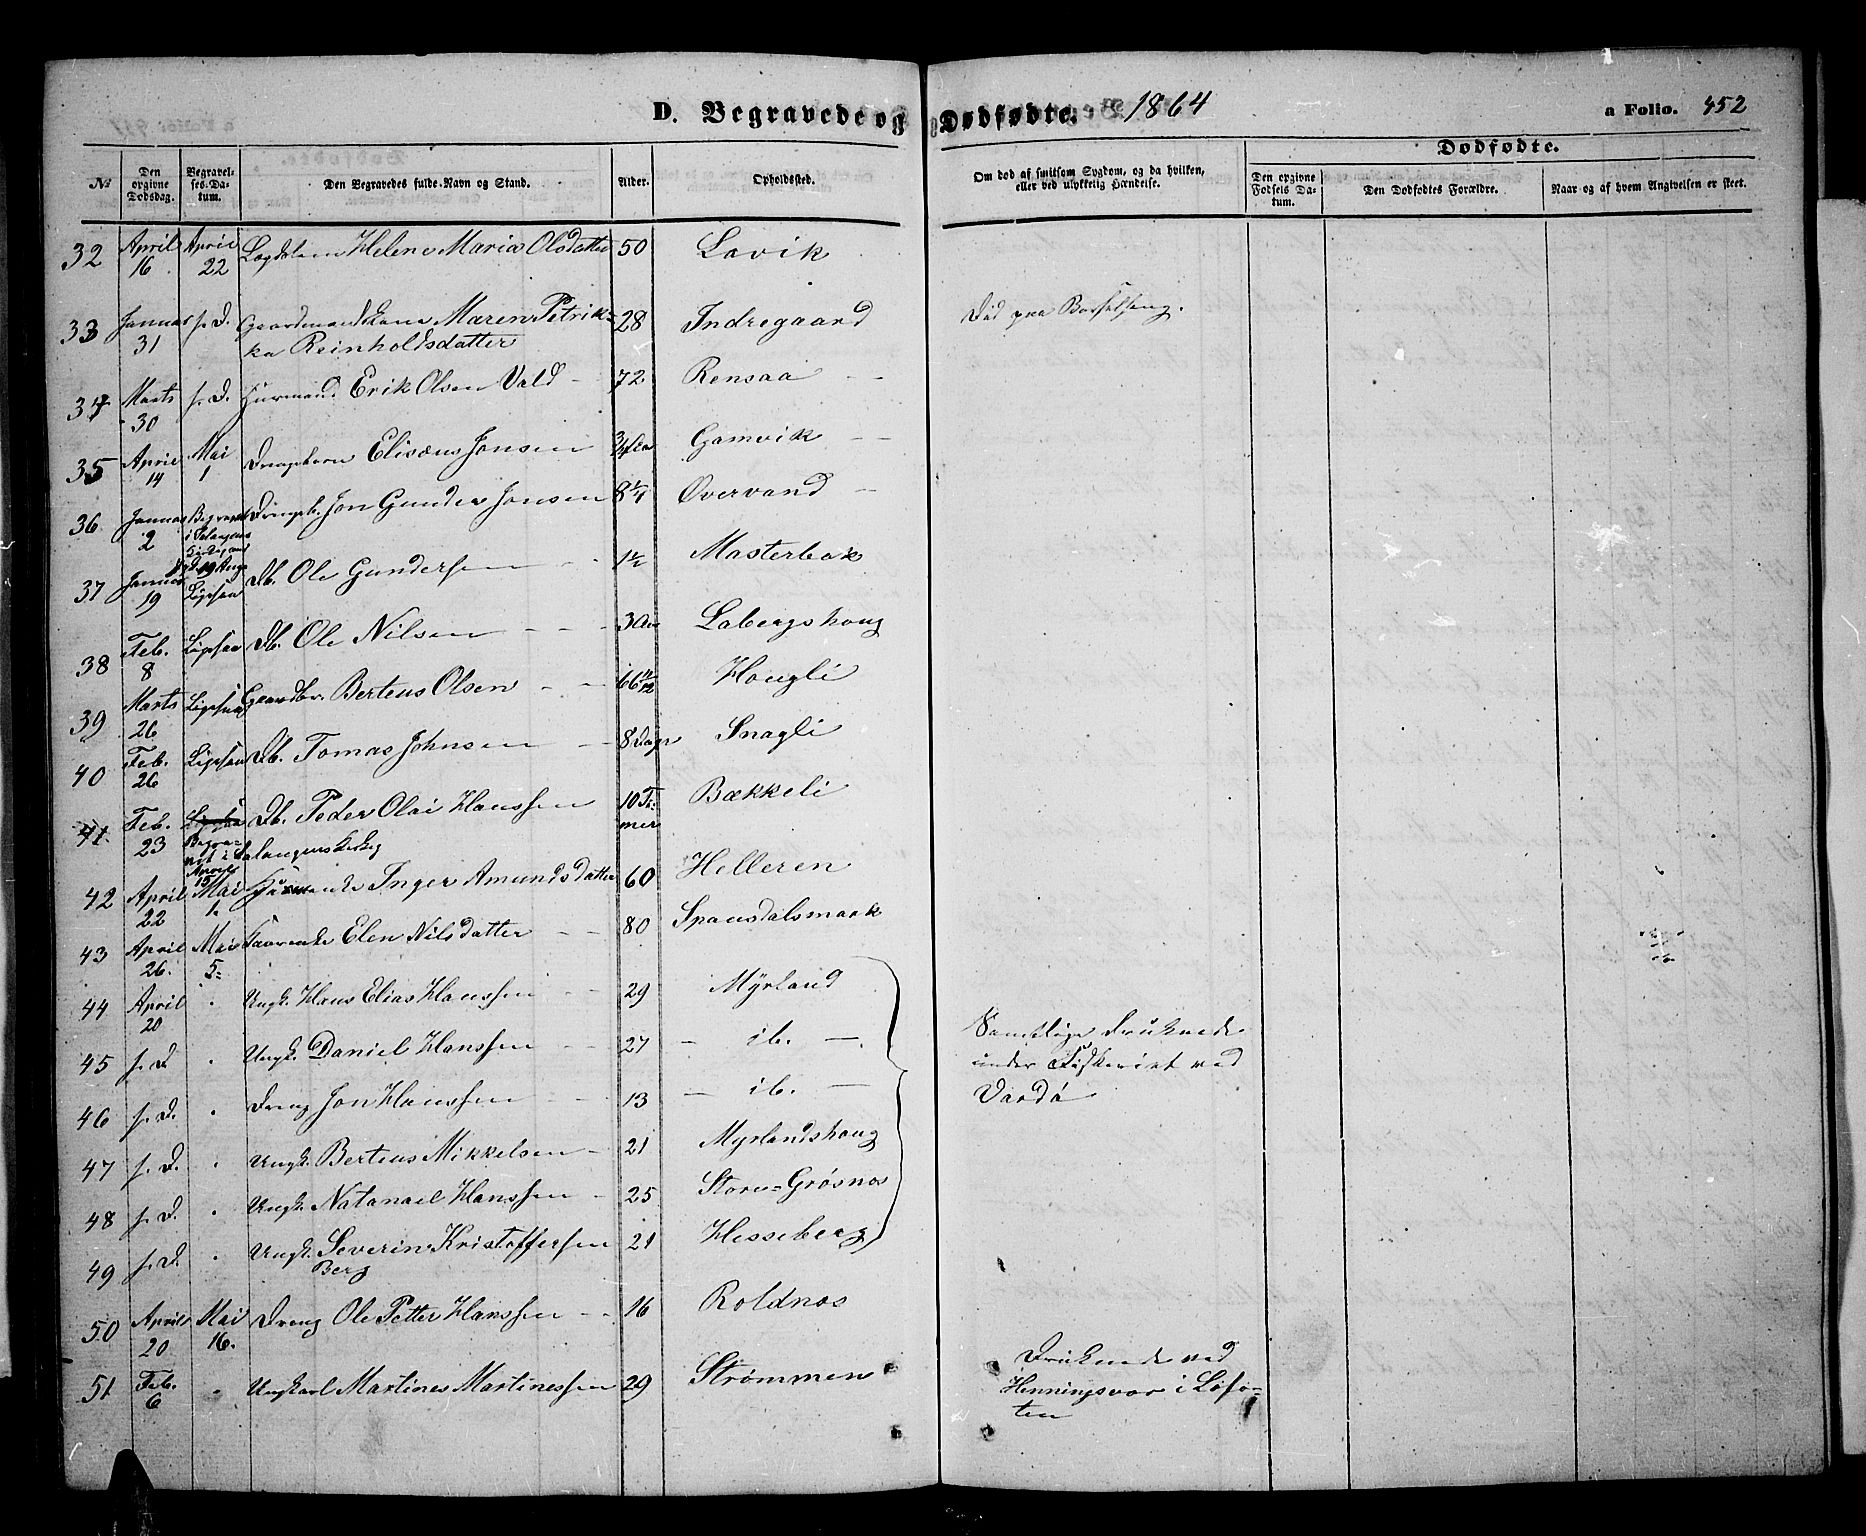 D. Begravede og Dødfødte. 1864 a Folio. 452
Dødfødte.
No Den opgivne Dødsdag. Begravelses-Datum. Den Begravedes fulde Navn og Stand. Alder. Opholdssted. Om død af smitsom Sygdom, og da hvilken, eller ved ulykkelig Hændelse. Den opgivne Fødsels Datum. Den Dødfødtes Forældre. Naar og af hvem Angivelsen er skeet.
32 April 16 April 22 Helene Maria Olsdatter 50 Lavik
33 Januar 31 s. D. Gaardmandskone Maren Petrik=
ka Reinholdsdatter 28 Indregaard Død paa Barselseng.
34 Marts 30 s. D. Huusmand Erik Olsen Vald 72 Rensaa
35 April 14 Mai 1 Drengebarn Elisæus Jonsen 3/4 Aar Gamvik
36 Januar 2 Begravet i Salangen Drengeb. Jon Gunder Jonsen 8 1/4 Overvand
37 Januar 19 Ligesaa Db. Ole Gundersen 1 1/2 Masterbak
38 Feb. 8 Ligesaa Db. Ole Nilsen 3 Aar Labergshoug
39 Marts 26 Ligesaa Gaardbr. Berteus Olsen 66 Hougli
40 Feb. 26 Ligesaa Db. Tomas Johnsen 8 Dage Snagli
41 Feb. 23 Begravet i Salangens Kirkeg April 15 Db. Peder Olai Hanssen 10 Timer Bækkeli
42 April 22 Mai 1. Inger Amundsdatter 60 Helleren
43 April 26. Mai 5 Elen Nilsdatter 80 Spansdalsmark
44 April 20 " Ungk. Hans Elias Hanssen 29 Myrland
45 s. D. " Ungk. Daniel Hanssen 27 – ib. –
46 s. D. " Dreng Jon Hanssen 13 – ib. –
47 s. D. " Ungk. Berteus Mikkelsen 21 Myrlandshoug
48 s. D. " Ungk. Natanael Hanssen 25 Store=Grøsnes
49 s. D. " Ungk. Severin Kristoffersen
Berg 21 Hesseberg
Samtlige druknede
under Fiskeriet ved
Vardø
50 April 20 Mai 16. Dreng Ole Petter Hanssen 16 Roldnes
51 Feb. 6 " Ungkarl Martines Martinessen 29 Strømmen
Druknede ved
Henningsvær i Lofo=
ten